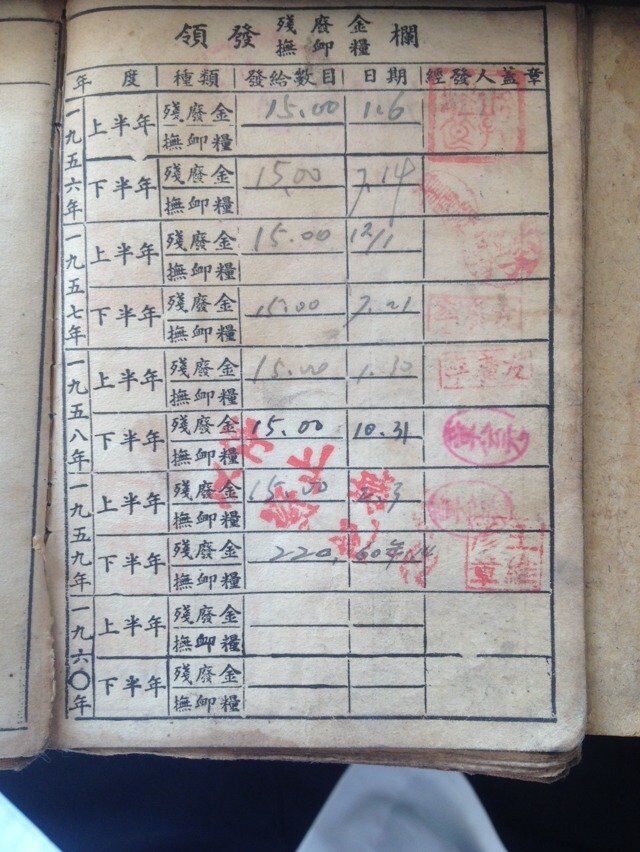 領發 殘廢金 撫卹糧 欄
年度 種類 發給數目 日期 經發人蓋章
一九五六年 上半年 殘廢金 15.00 1.6
撫卹糧
下半年 殘廢金 15.00 7.14
撫卹糧
一九五七年 上半年 殘廢金 15.00 12/1
撫卹糧
下半年 殘廢金 15.00 7.21
撫卹糧
一九五八年 上半年 殘廢金 15.00 1.30
撫卹糧
下半年 殘廢金 15.00 10.31
撫卹糧
一九五九年 上半年 殘廢金 15.00
撫卹糧
下半年 殘廢金 220
撫卹糧
一九六〇年 上半年 殘廢金
撫卹糧
下半年 殘廢金
撫卹糧